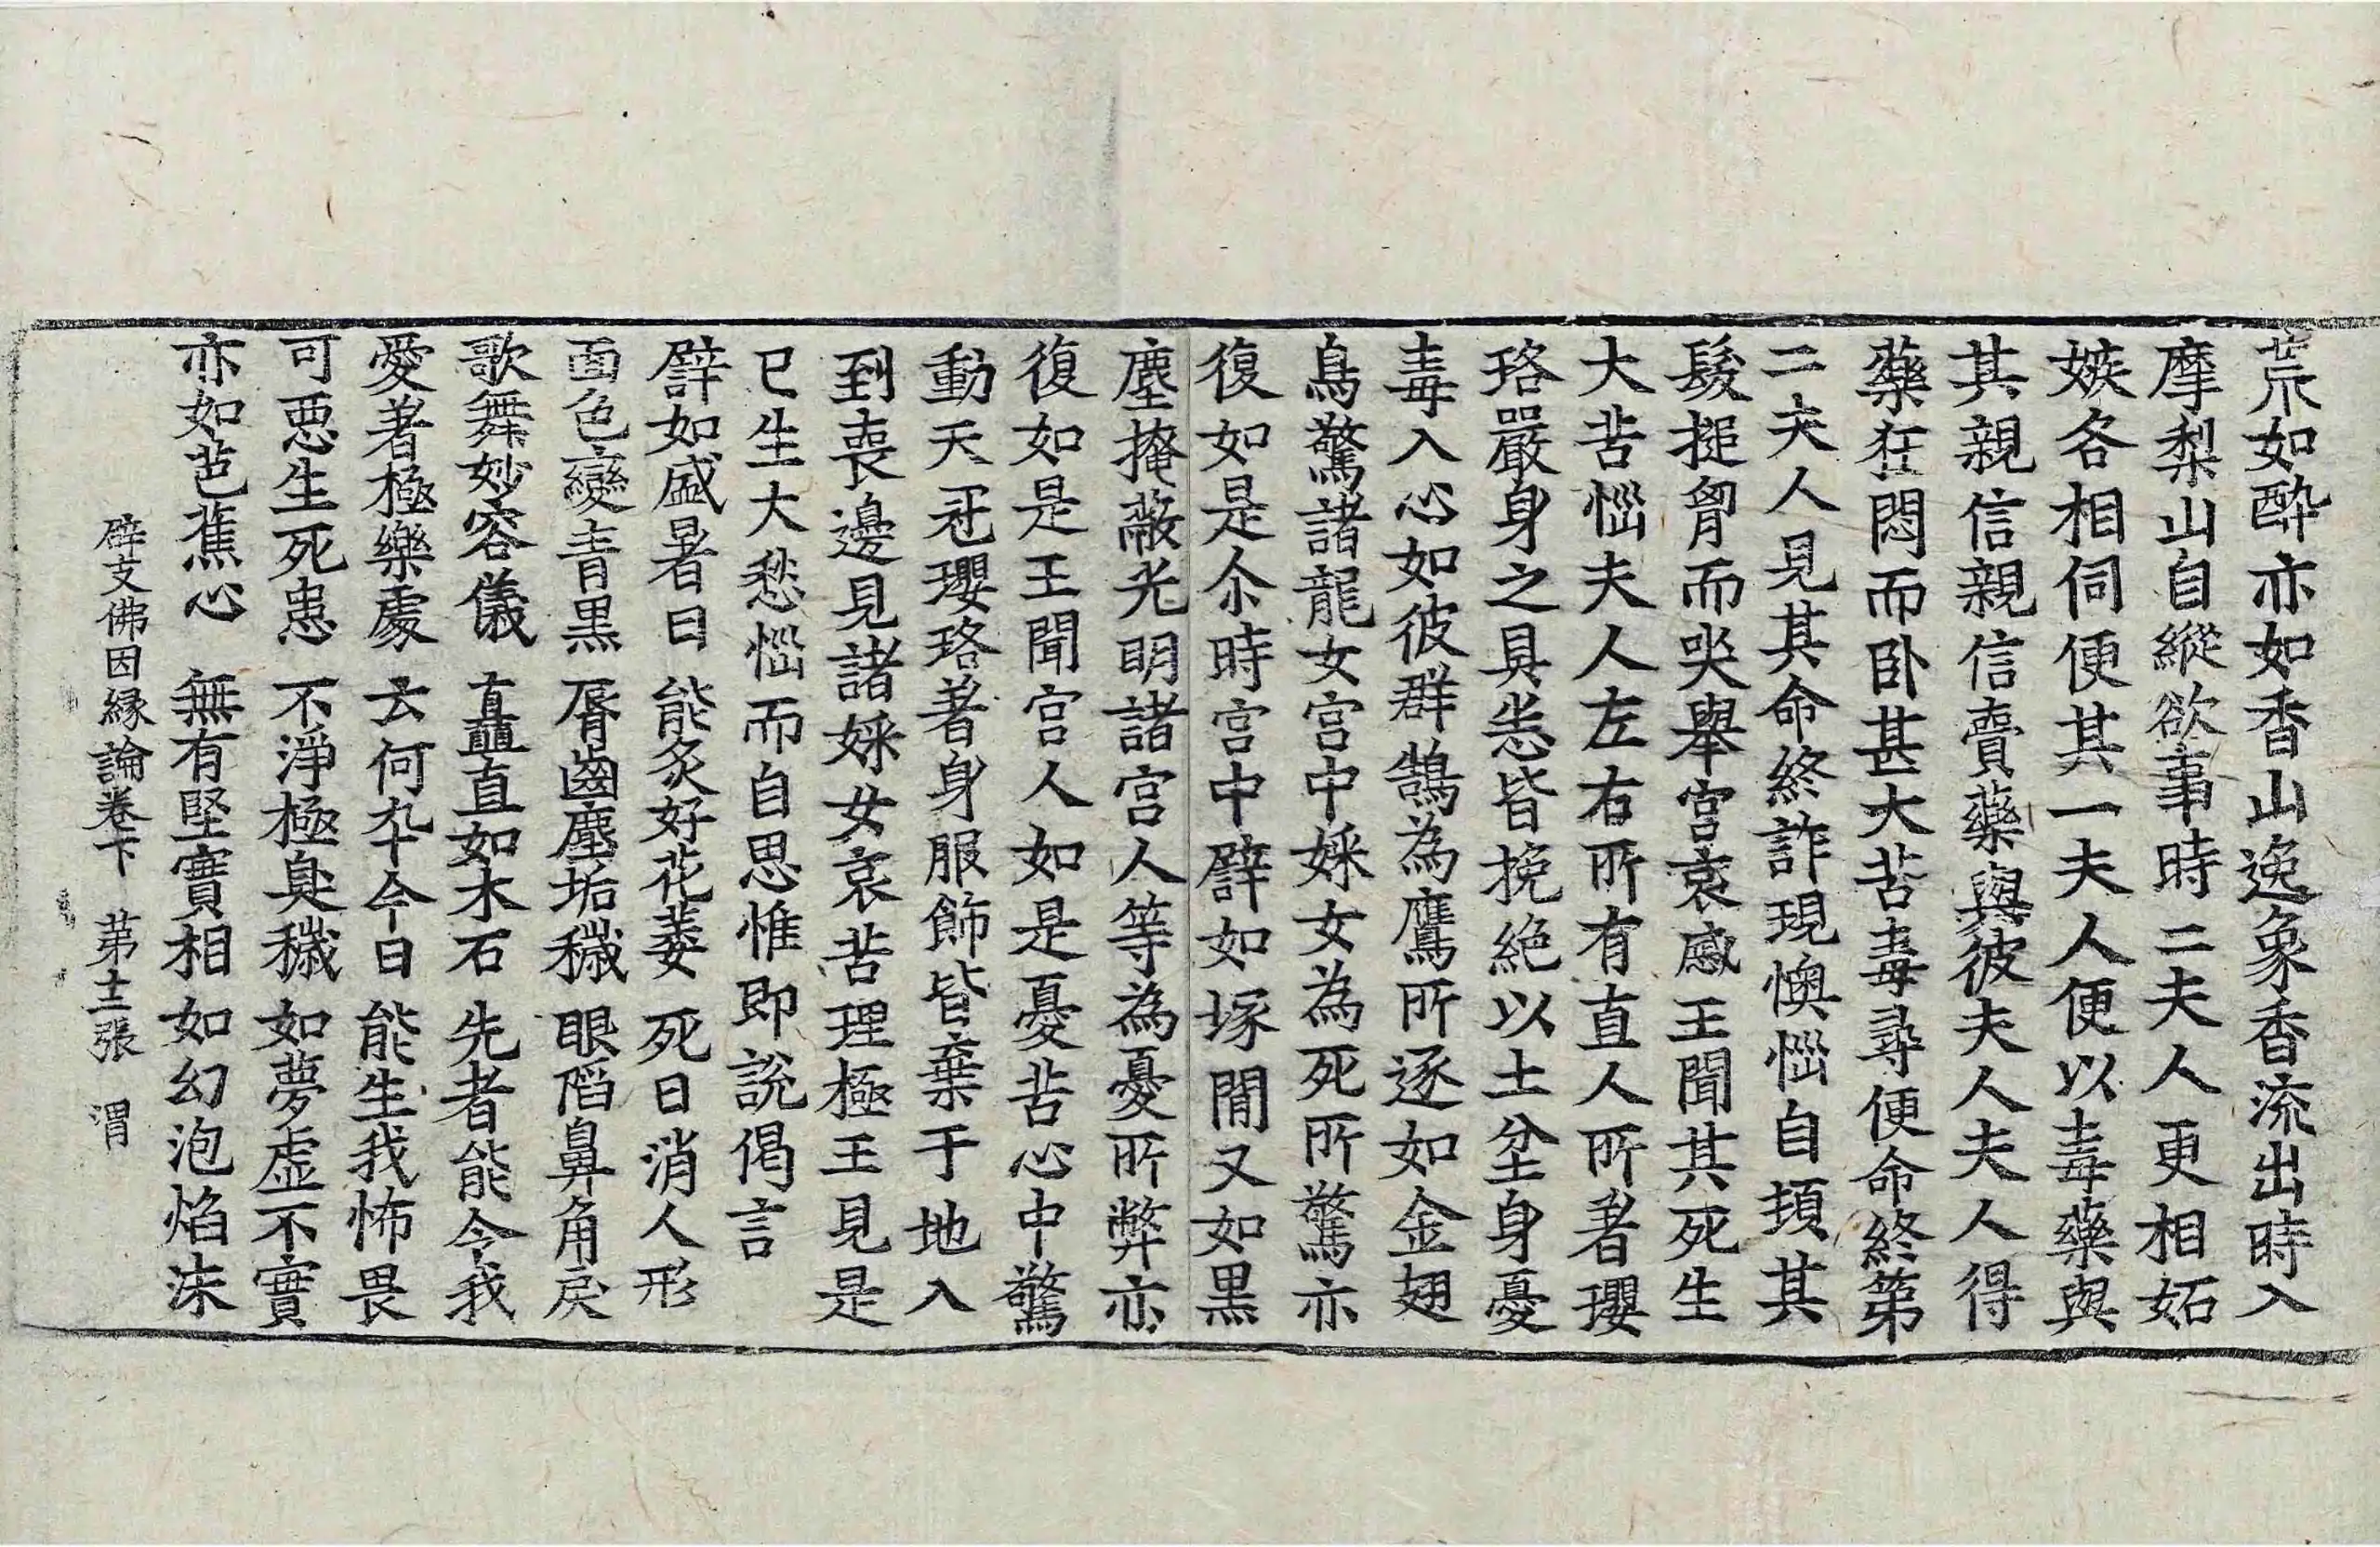 荒如酔亦如香山逸象香流出時入
摩梨山自縱欲事時二夫人更相妬
嫉各相伺便其一夫人便以毒藥與
其親信親信賣藥與彼夫人夫人得
藥狂悶而卧甚大苦毒尋便命終第
二夫人見其命終詐現懊惱自頓其
髮搥胷而哭舉宮哀慼王聞其死生
大苦惱夫人左右所有直人所著瓔
珞嚴身之具悉皆挽絕以土坌身憂
毒入心如彼群鵠為鷹所逐如金翅
鳥驚諸龍女宮中婇女為死所驚亦
復如是尒時宮中譬如塚間又如黑
塵掩蔽光明諸宮人等為憂所弊亦
復如是王聞宮人如是憂苦心中驚
動天冠瓔珞著身服飾皆棄于地入
到喪邊見諸婇女哀苦理極王見是
已生大愁惱而自思惟即說偈言
譬如盛暑日 能炙好花萎 死日消人形
面色變青黑 脣齒塵垢穢 眼陷鼻角戾
歌舞妙容儀 矗直如木石 先者能令我
愛著極樂處 云何於今日 能生我怖畏
可惡生死患 不淨極臭穢 如夢虛不實
亦如芭蕉心 無有堅實相 如幻泡焰沫
辟支佛因緣論卷下 第十二張 渭